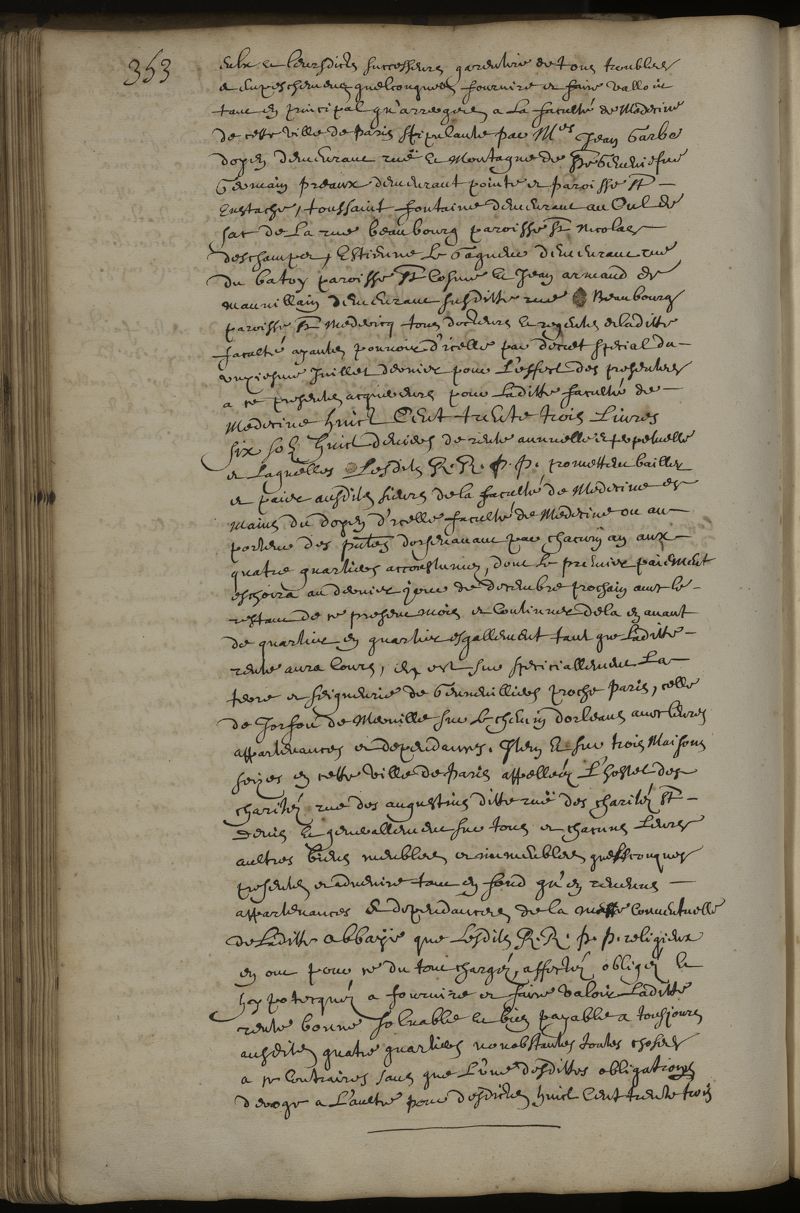 353
eulx et leursdicts successeurs garentire de tous troubles
et empeschemens quelconques fournire et faire valloir
tant en principal qu'arrerages a La faculté de Medecine
de cette ville de Paris stipulante par Mes Jean Garbe
doyen demeurant rue et Montagne de Ste Geneviefve
Germain preaux demeurant pointe et paroisse St
Eustache, toussaint fontaine demeurant au Cul de
sac de La rue beaubourg paroisse St Nicolas
deschamps, Estienne Le Gagneur demeurant rue
du batoy paroisse St Cosme et Jean armand de
mauvillain demeurant susditte rue Beaubourg
paroisse St Medericq tous docteurs et regentes deladitte
faculté ayants pouvoir d'icelle par decret special du
unziesme Juillet dernier pour L'effect des presentes
a ce presents acquereurs pour Laditte faculté de
Medecine huict Cent trente trois Livres
six solz huict deniers de rente annuelle et perpetuelle
et Laquelles Lesdits R. R. P. P. promettent bailler
et paier ausdits sieurs de la faculté de Medecine es
mains du doyen d'icelle faculté de Medecine ou au
porteur des pntes doresnavant par chacun an aux
quatre quartiers accoustumez, dont Le premier paiement
eschoira au dernier jour de decembre prochain avec le
restant de ce present mois et Continuer dela en avant
de quartier en quartier esgallement tant que Laditte
rente aura Cours, en et sur speciallement La
terre et seigneurie de Gennevilliers proche Paris, celle
de Jorfou de Merville sur Le chemin dorleans avec Leurs
appartenances et dependances. Item et sur trois Maisons
seizes en cette ville de Paris appellées L'hostel des
charitez rue des augustins ditte rue des charitez St
Denis et generallement sur tous et chacuns Leurs
aultres biens meubles et immeubles quelsconques
presents et advenire tant en fond qu'en revenus
appartenances et dependances de la messe Conventuelle
de Laditte abbaye que Lesdits R. R. P. P. religieux
en ont pour ce du tout chargez, affectez, obligez et
hypotecquez a fournire et faire valoir Laditte
rente bonne solvable et bien payable a tousjours
ausdits quatre quartiers nonobstantes toutes choses
a ce Contraires sans que L'une desdittes obligations
deroge a L'aultre pour desdictes huict Cent trente trois